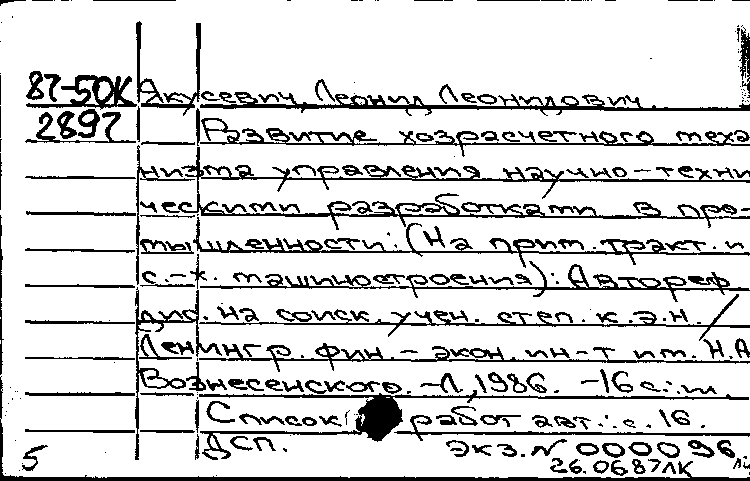 87-50К Якусевич, Леонид Леонидович.
2897 Развитие хозрасчетного меха-
низма управления научно-техни
ческими разработками в про-
мышленности: (На прим. тракт. и
с.-х. машиностроения): Автореф
дис. на соиск. учен. степ. к.э.н. /
Ленингр. фин.-экон. ин-т им. Н.А
Вознесенского. -Л., 1986. -16 с.: ил.
Список работ авт.: с. 16.
ДСП. Экз. N 000096.
5 26.06.87ЛК